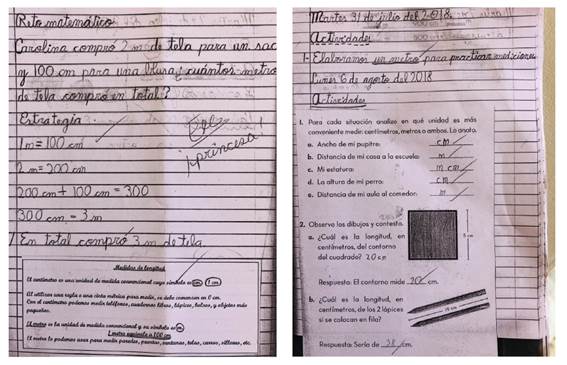 Reto matemático
Carolina compró 2 m de tela para un sac
y 100 cm para una blusa ¿cuántos metro
de tela compró en total?
Estrategia
1 m = 100 cm
¡princesa!
2 m = 200 cm
200 cm + 100 cm = 300
300 cm = 3 m
En total compró 3 m de tela
Medidas de longitud
El centímetro es una unidad de medida convencional cuyo símbolo es cm 1 cm
Al utilizar una regla o una cinta métrica para medir, se debe comenzar en 0 cm.
Con el centímetro podemos medir teléfonos, cuadernos, libros, lápices, bolsos, y objetos más
pequeños.
El metro es la unidad de medida convencional y su símbolo es m
1 metro equivale a 100 cm
El metro lo podemos usar para medir paredes, puertas, ventanas, telas, carros, sillones, etc.
Martes 31 de julio del 2018
Actividades
1- Elaboramos un metro para practicar mediciones
Lunes 6 de agosto del 2018
Actividades
1. Para cada situación analizo en qué unidad es más
conveniente medir: centímetros, metros o ambos. Lo anoto.
a. Ancho de mi pupitre: cm
b. Distancia de mi casa a la escuela: m
c. Mi estatura: m cm
d. La altura de mi perro: cm
e. Distancia de mi aula al comedor: m
2. Observo los dibujos y contesto.
a. ¿Cuál es la longitud, en
centímetros, del contorno
del cuadrado? 20 cm
5 cm
Respuesta: El contorno mide 20 cm.
b. ¿Cuál es la longitud, en
centímetros, de los 2 lápices
si se colocan en fila?
Respuesta: Sería de 38 cm.